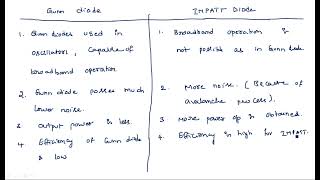 Gunn diode
IMPATT Diode
1. Gunn diodes used in
oscillators, capable of
broadband operation
1. Broadband operation is
not possible as in Gunn diode.
2. Gunn diode posses much
lower noise.
2. More noise. (Because of
avalanche process).
3. output power is less.
3. More power op is obtained.
4. Efficiency of Gunn diode
is low
4. Efficiency is high for IMPATT.